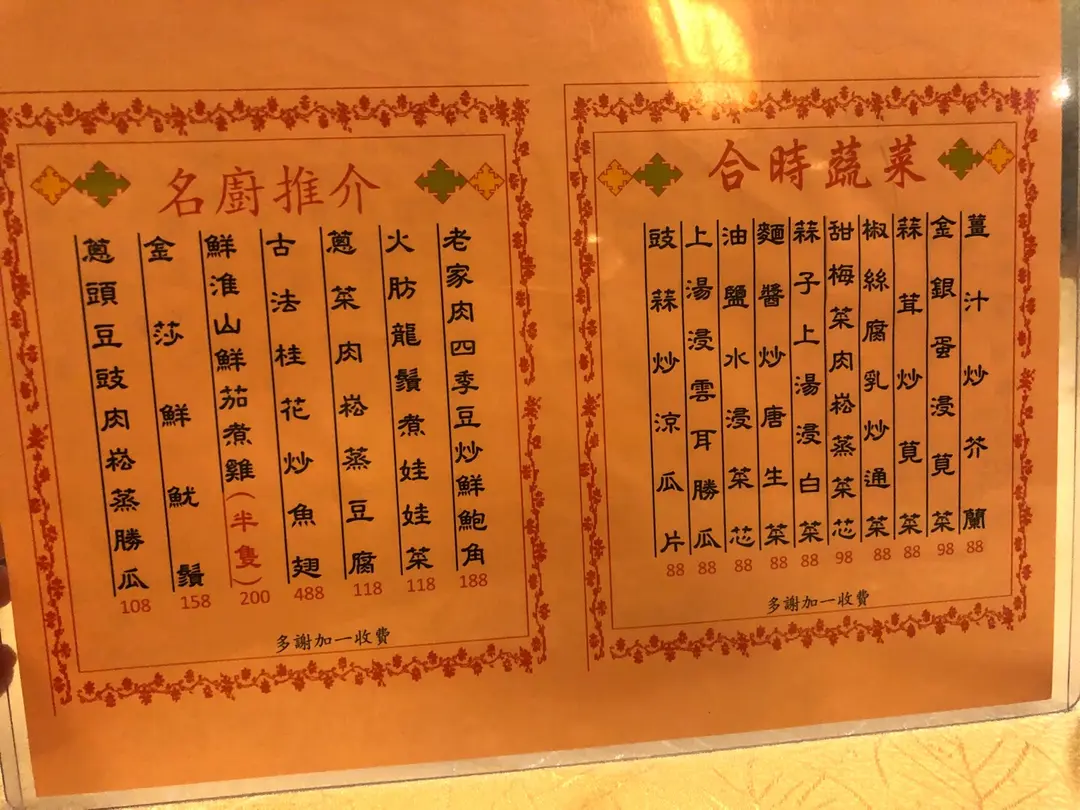 合時蔬菜
薑汁炒芥蘭
88
金銀蛋浸莧菜
98
蒜茸炒莧菜
88
椒絲腐乳炒通菜
88
甜梅菜肉崧蒸菜芯
98
蒜子上湯浸白菜
88
麵醬炒唐生菜
88
油鹽水浸菜芯
88
上湯浸雲耳勝瓜
88
豉蒜炒涼瓜片
88
多謝加一收費
名廚推介
老家肉四季豆炒鮮鮑角
188
火肪龍鬚煮娃娃菜
118
蔥菜肉崧蒸豆腐
118
古法桂花炒魚翅
488
鮮淮山鮮茄煮雞(半隻)
200
金莎鮮魷鬚
158
蔥頭豆豉肉崧蒸勝瓜
108
多謝加一收費